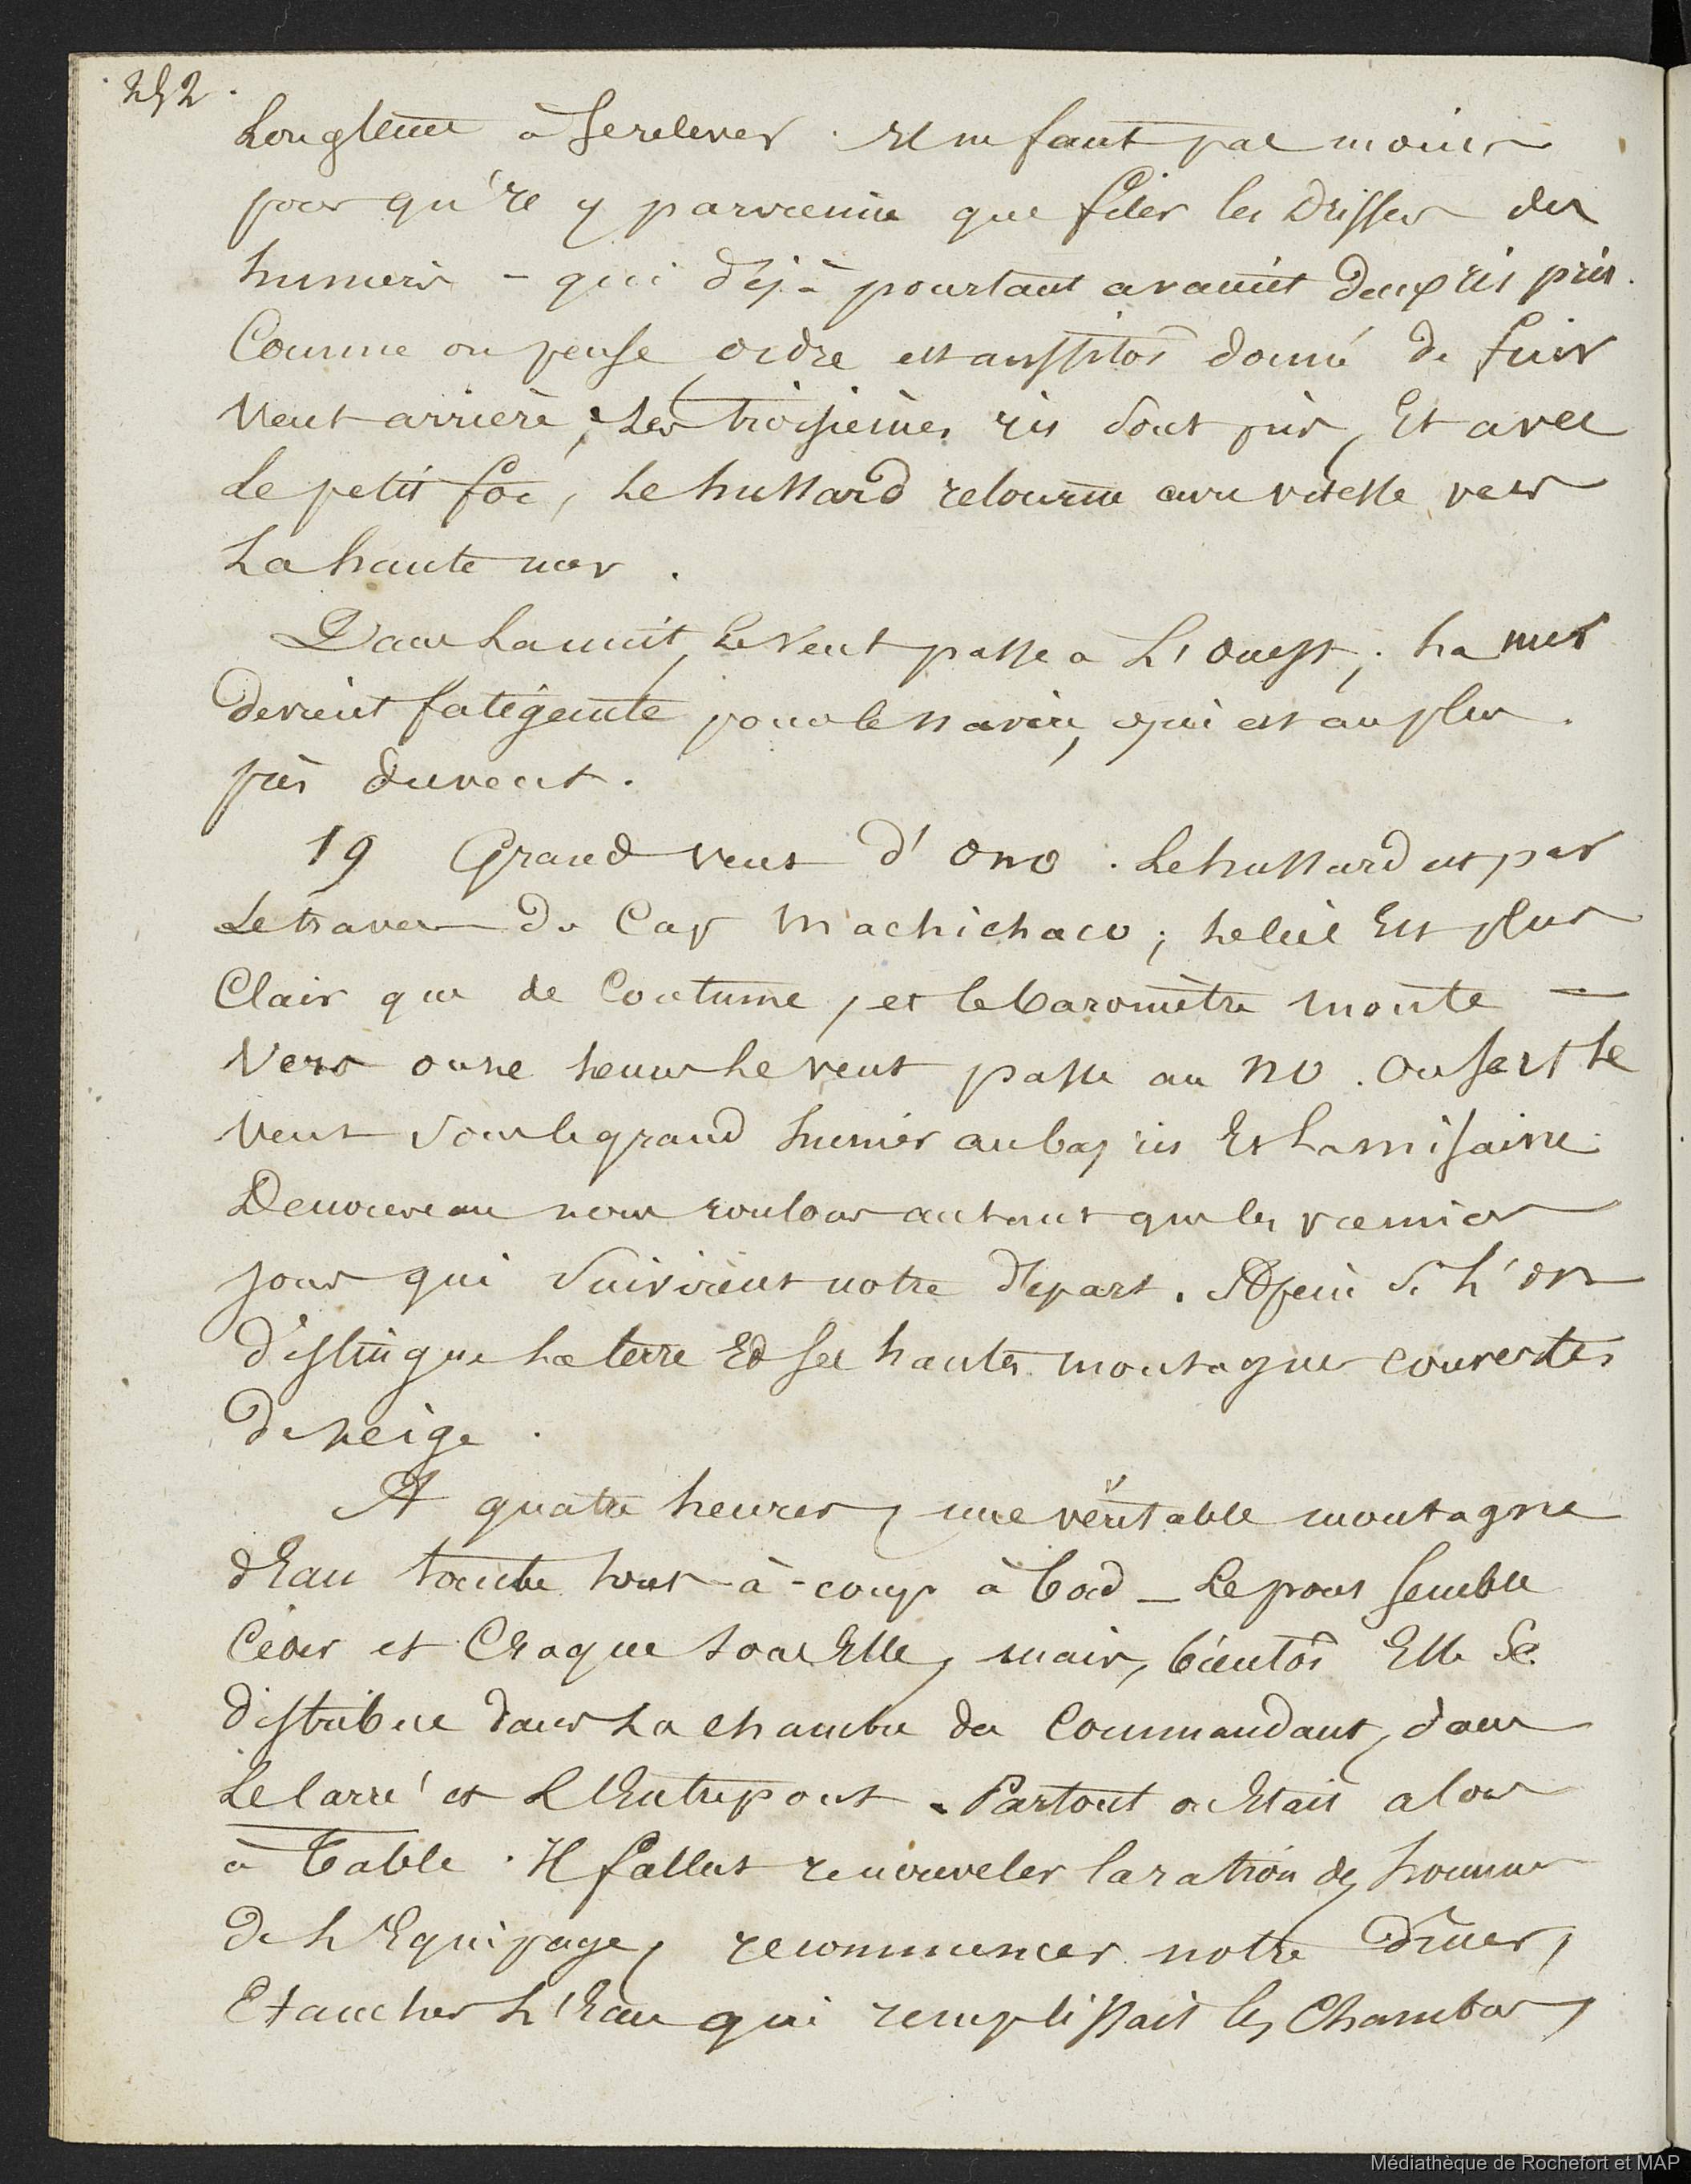 252.
Longtems à se relever. Il ne faut pas moins
pour qu'il y parvienne que filer les drisses des
huniers - qui déjà pourtant avaient deux ris pris.
Comme on pense ordre est aussitôt donné de fuir
Vent arrière; Les troisièmes ris sont pris, Et avec
Le petit foc, Le hussard retourne avec vitesse vers
La haute mer.
Dans La nuit, Le Vent passe à L'Ouest; La mer
devient fatigante pour le navire, qui est au plus
près du vent.
19 Grand vent d'ONO. Le hussard est par
Le travers du Cap Machichaco; Le ciel Est plus
Clair que de Coutume, et le baromètre monte —
Vers onze heures Le vent passe au NO. On sert Le
Vent sous le grand hunier au bas ris Et La misaine.
De nouveau nous roulons autant que les premiers
jours qui suivirent notre départ. A peine si L'on
distingue La terre Et ses hautes montagnes couvertes
de neige.
A quatre heures, une véritable montagne
d'Eau tombe tout-à-coup à bord — Le pont semble
Céder et Craque sous Elle, mais, bientôt Elle se
distribue dans La chambre du Commandant, dans
Le Carré et L'Entrepont. Partout on Etait alors
à Table. Il fallut renouveler la ration des hommes
de L'Equipage, recommencer notre dîner,
Etancher L'Eau qui remplissait les Chambres,
Médiathèque de Rochefort et MAP